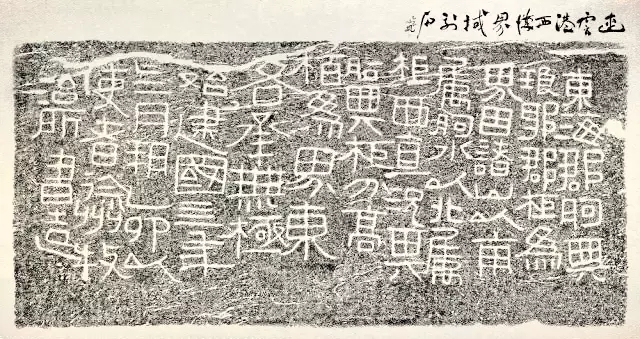 連雲港西漢界域刻石
東海郡朐與
琅邪郡柜為
界因諸山以南
屬朐水以北屬
柜西直況其
朐與柜分高
陌為界東
各承無極
始建國亖年
亖月朔乙卯以
使者徐州牧
治所書造